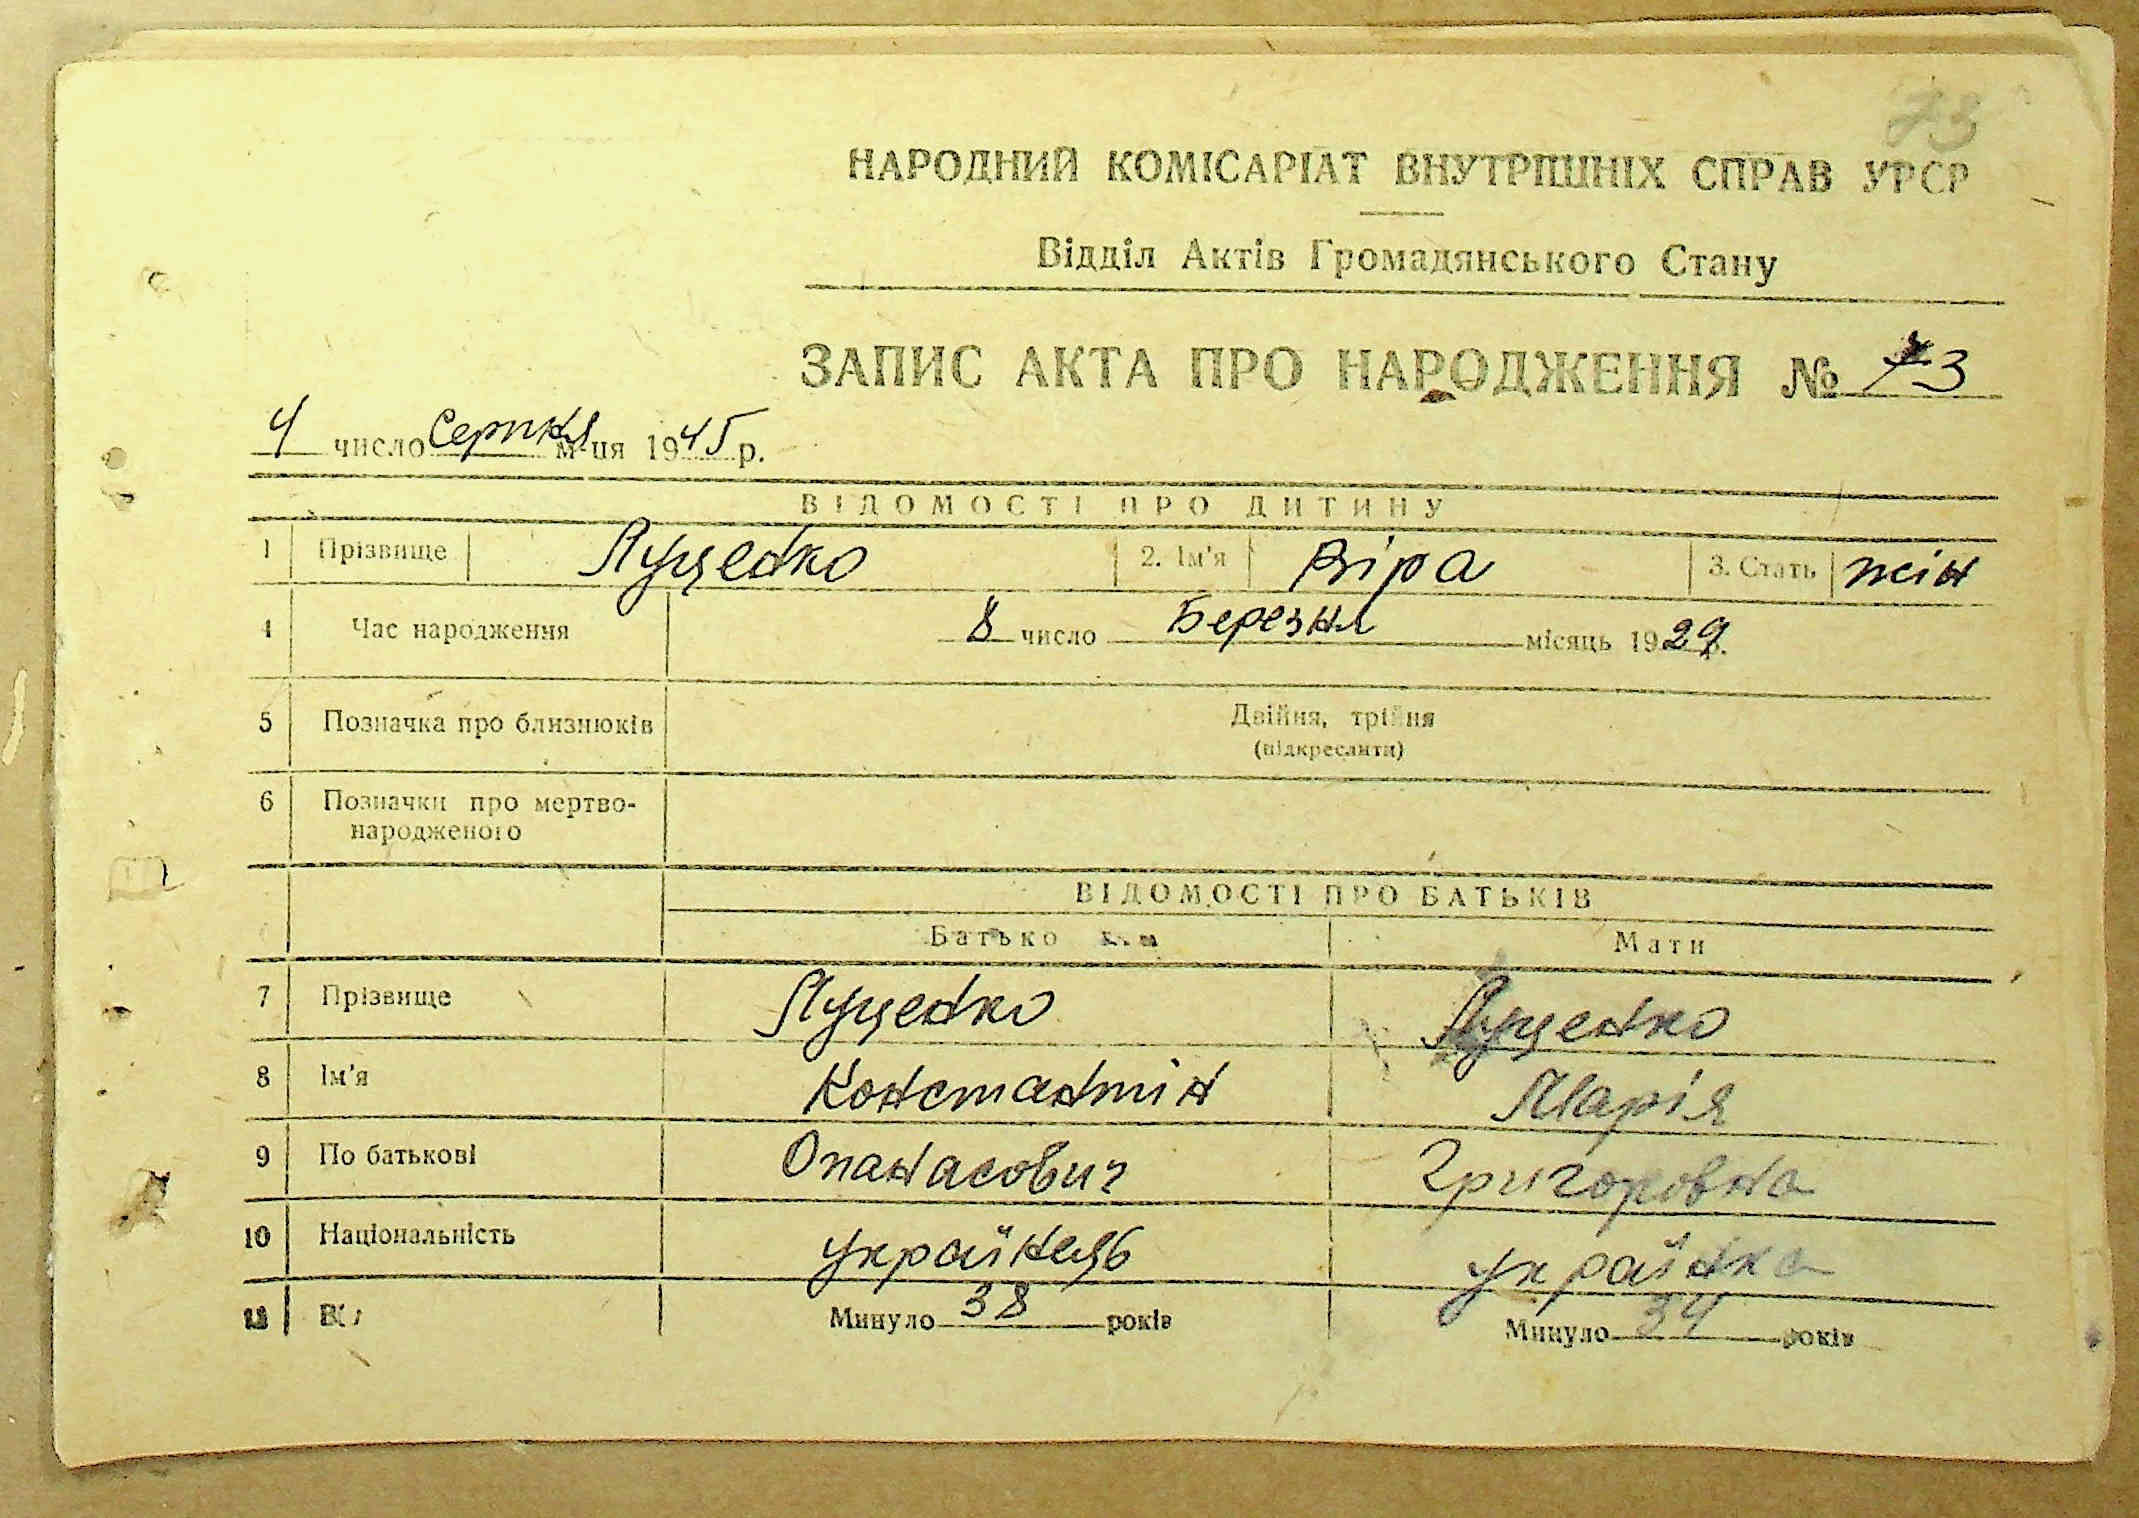 73
НАРОДНИЙ КОМІСАРІАТ ВНУТРІШНІХ СПРАВ УРСР
Відділ Актів Громадянського Стану
ЗАПИС АКТА ПРО НАРОДЖЕННЯ № 73
4 число Серпня м-ця 1945 р.
ВІДОМОСТІ ПРО ДИТИНУ
1 Прізвище Луценко 2. Ім'я Віра 3. Стать жін
4 Час народження 8 число Березня місяць 1929 р.
5 Позначка про близнюків Двійня, трійня
(підкреслити)
6 Позначки про мертво-
народженого
ВІДОМОСТІ ПРО БАТЬКІВ
Батько Мати
7 Прізвище Луценко Луценко
8 Ім'я Константін Марія
9 По батькові Опанасович Григоровна
10 Національність українець українка
11 Вік Минуло 38 років Минуло 34 років